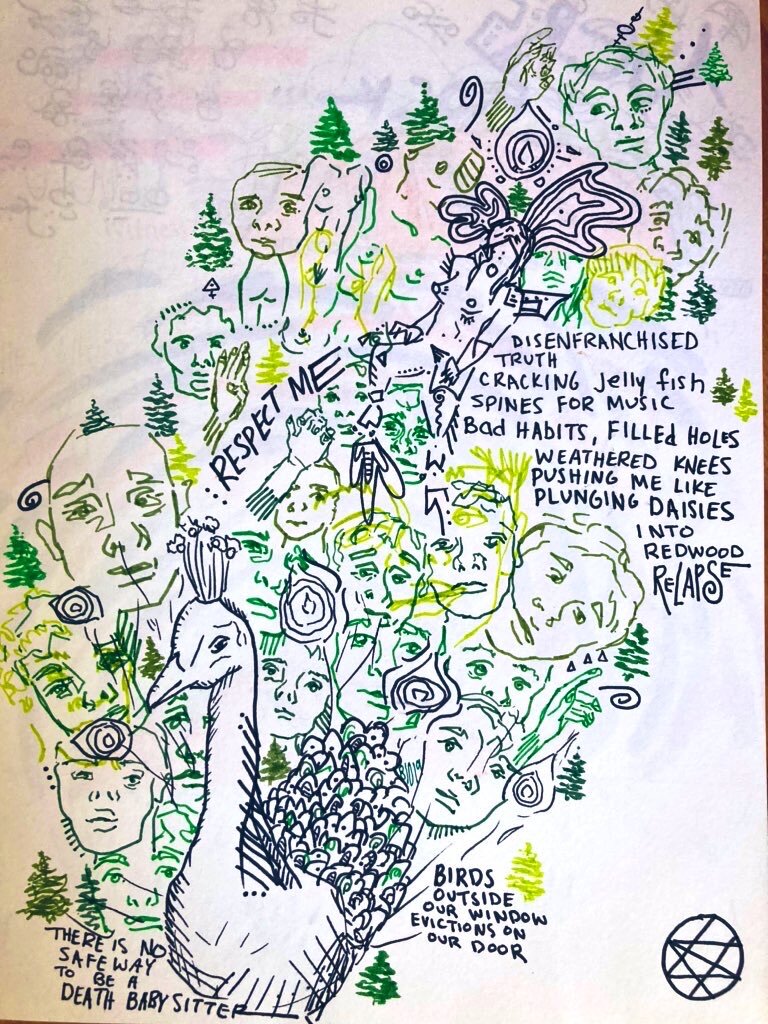 DISENFRANCHISED
TRUTH
CRACKING jelly fish
SPINES FOR MUSIC
Bad HABITS, FILLED HOLES
WEATHERED KNEES
PUSHING ME LIKE
PLUNGING DAISIES
INTO
REDWOOD
RELAPSE
RESPECT ME
BIRDS
OUTSIDE
OUR WINDOW
EVICTIONS ON
OUR DOOR
THERE IS NO
SAFE WAY
TO BE A
DEATH BABYSITTER